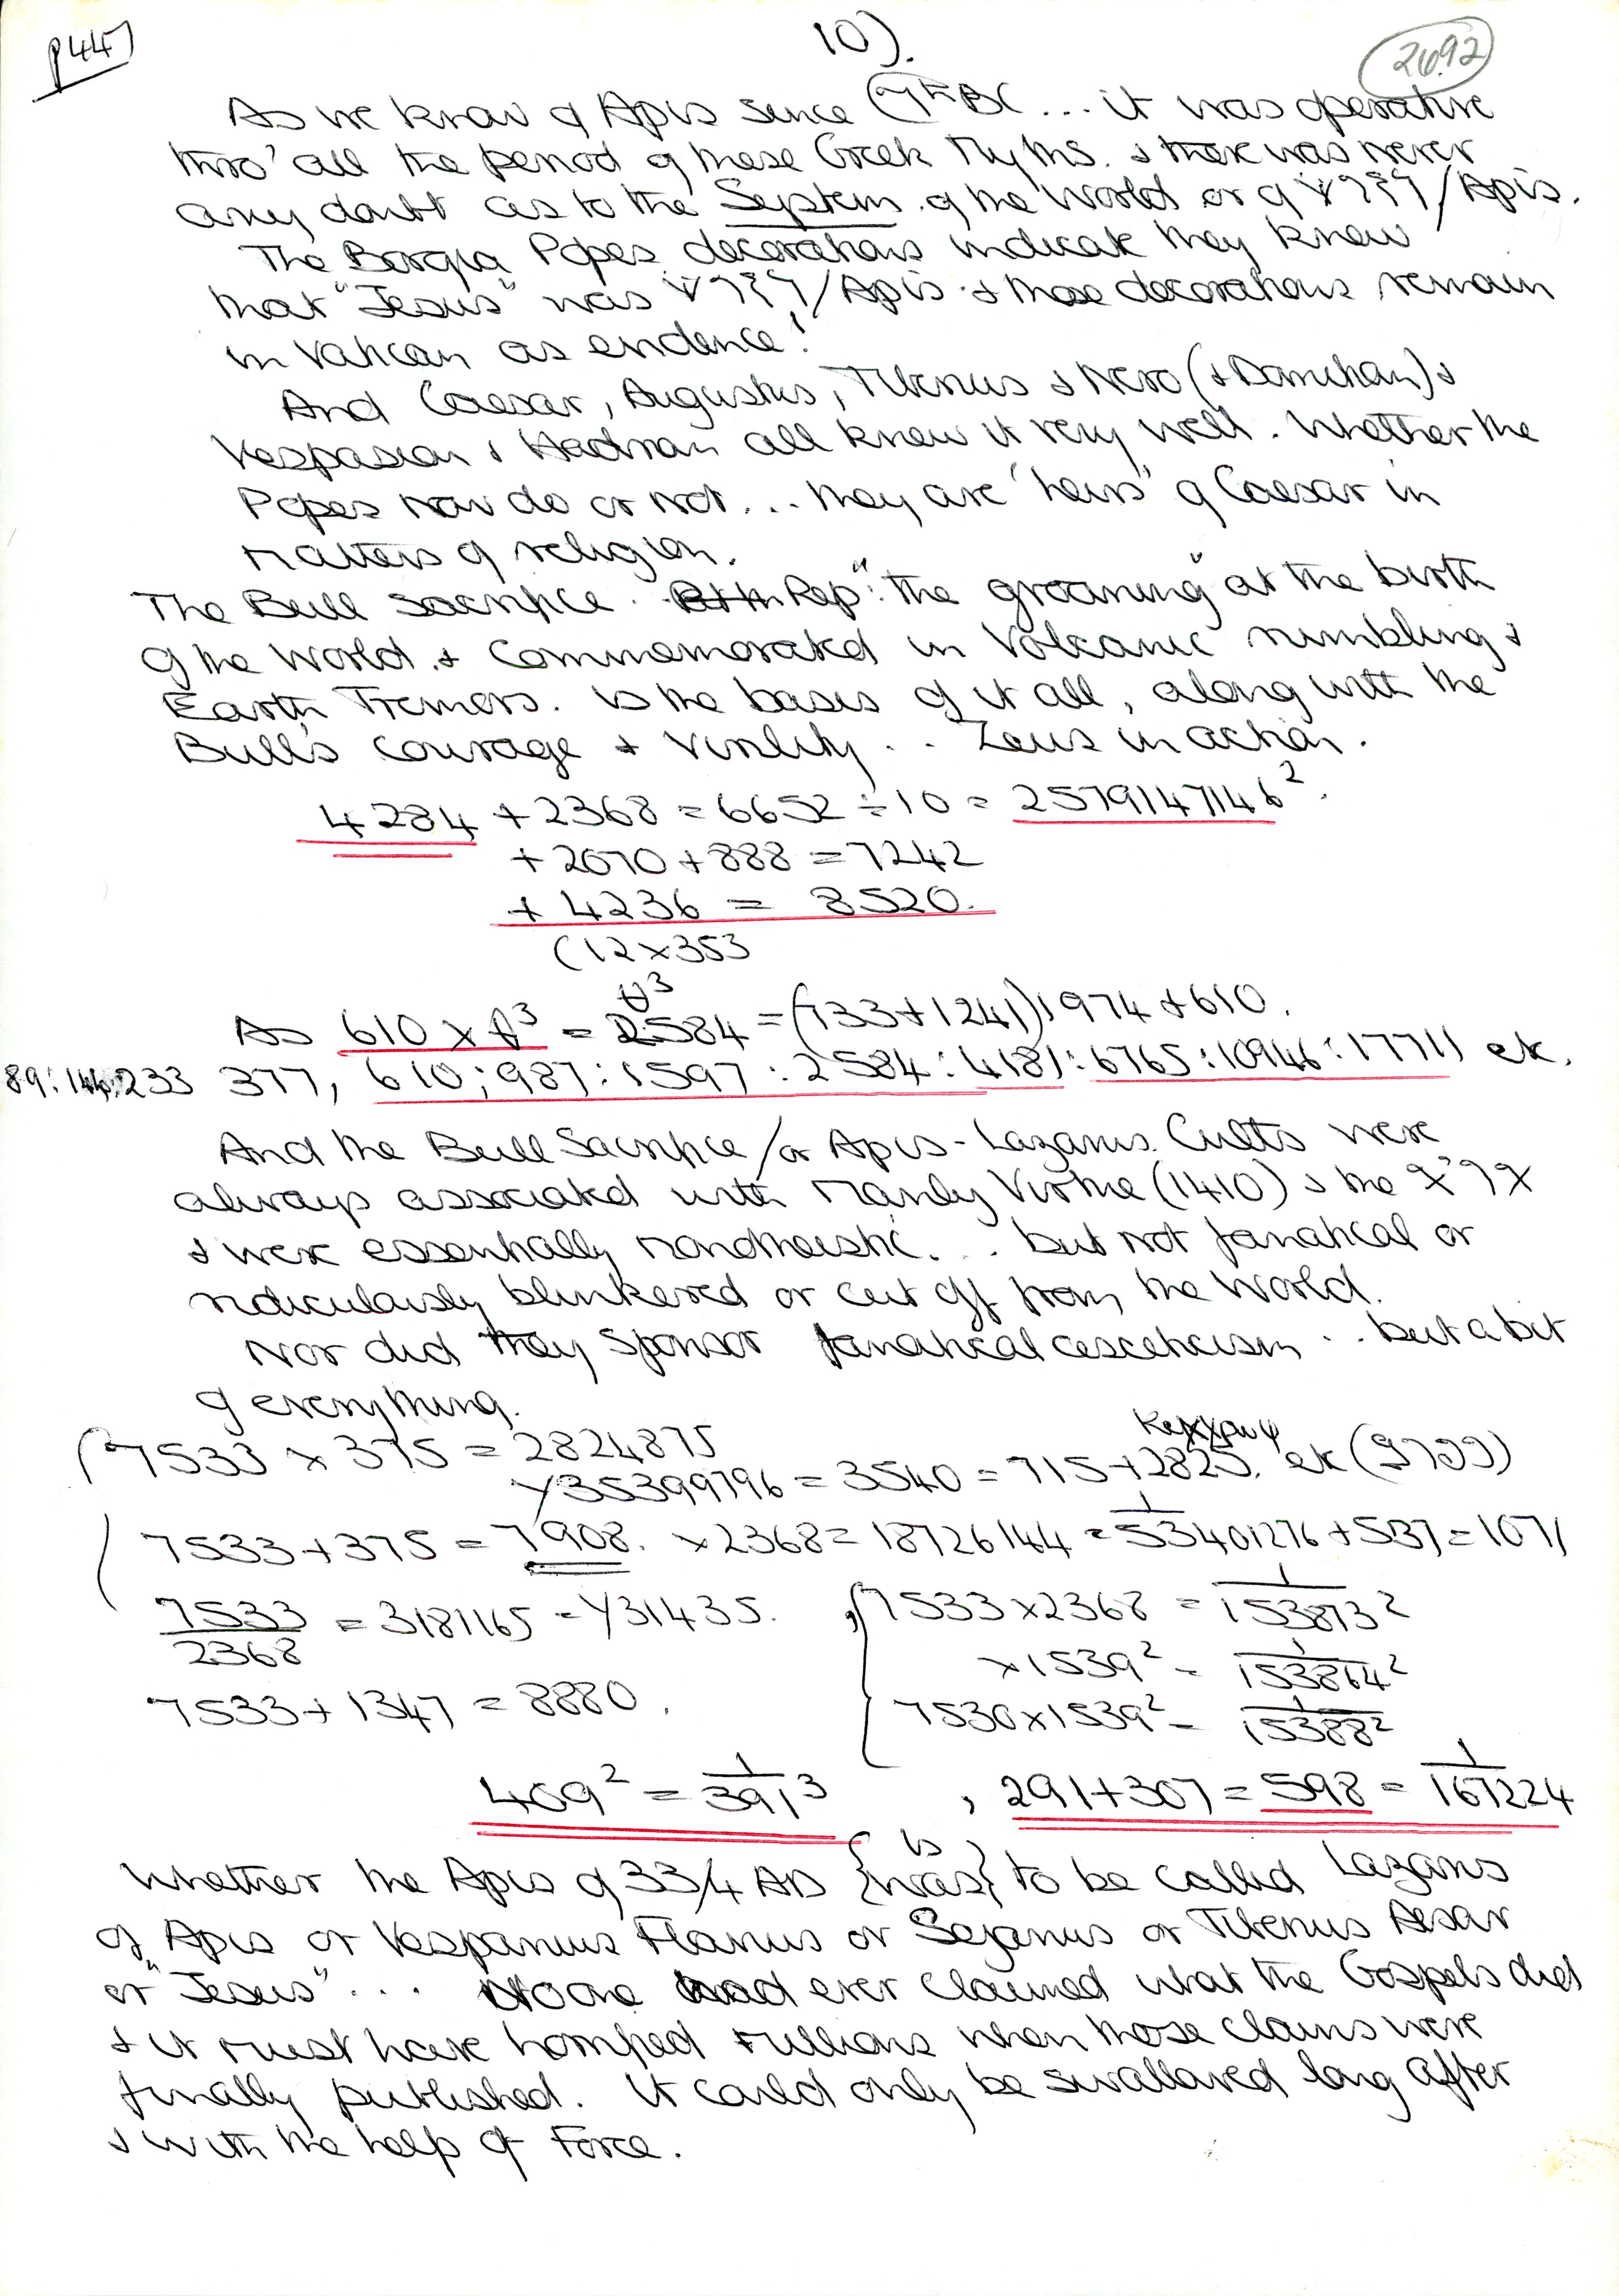 p44)
10).
2692
As we know of Apis since BC ... it was operative
thro' all the period of these Greek Myths. & there was never
any doubt as to the System of the World or of /Apis.
The Borgia Popes decorations indicate they knew
that "Jesus" was /Apis & those decorations remain
in Vatican as evidence!
And Caesar, Augustus, Tiberius & Nero (& Domitian) &
Vespasian & Hadrian all knew it very well. Whether the
Popes now do or not... they are "heirs" of Caesar in
matters of religion.
The Bull sacrifice. Rep": the groaning" at the birth
of the World & commemorated in Volcanic rumbling &
Earth Tremors. is the basis of it all, along with the
Bull's courage & Virility .. Zeus in action.
4284 + 2368 = 6652 ÷ 10 = 2579147146².
+ 2070 + 888 = 7242
+ 4236 = 8520.
(12 x 353
As 610 x θ³ = 2584 = (733 + 1241) 1974 + 610.
89: 144: 233 377, 610; 987: 1597: 2584: 4181: 6765: 10946: 17711 etc.
And the Bull Sacrifice / or Apis - Lazarus. Cults were
always associated with Manly Virtue (1410) & the
& were essentially monotheistic... but not fanatical or
ridiculously blinkered or cut off from the World.
Nor did they sponsor fanatical asceticism .. but a bit
of everything.
(7533 x 375 = 2824875
√35399796 = 3540 = 715 + 2825. etc
(7533 + 375 = 7908. x 2368 = 18726144 = 1/53401276 + 537 = 1071
7533/2368 = 3181165 = 1/31435.
{7533 x 2368 = 1/153873²
x 1539² = 1/153864²
7533 + 1347 = 8880.
7530 x 1539² = 1/15388²
409² = 1/391³ , 291 + 307 = 598 = 1/167224
Whether the Apis of 33/4 AD {is was} to be called Lazarus
of Apis or Vespanius Flavius or Sejanus or Tiberius Aesar
or "Jesus" ... No one had ever claimed what the Gospels did
& it must have horrified millions when those claims were
finally published. It could only be swallowed long after
& with the help of Force.